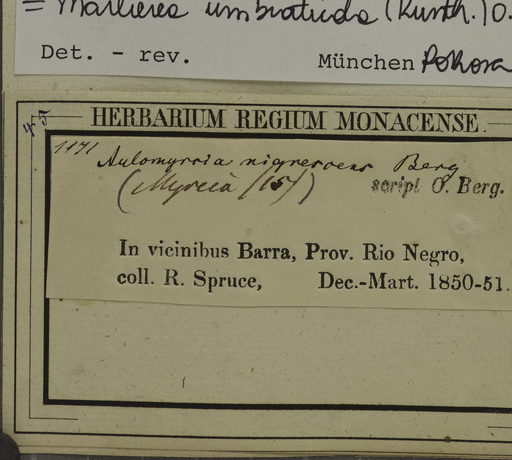 = Marlierea umbraticola (Kunth.) O.
Det. - rev. München Pokorna
45
HERBARIUM REGIUM MONACENSE.
1171 Aulomyrcia nigrescens Berg
(Myrcia (15))
script O. Berg.
In vicinibus Barra, Prov. Rio Negro,
coll. R. Spruce, Dec.-Mart. 1850-51.